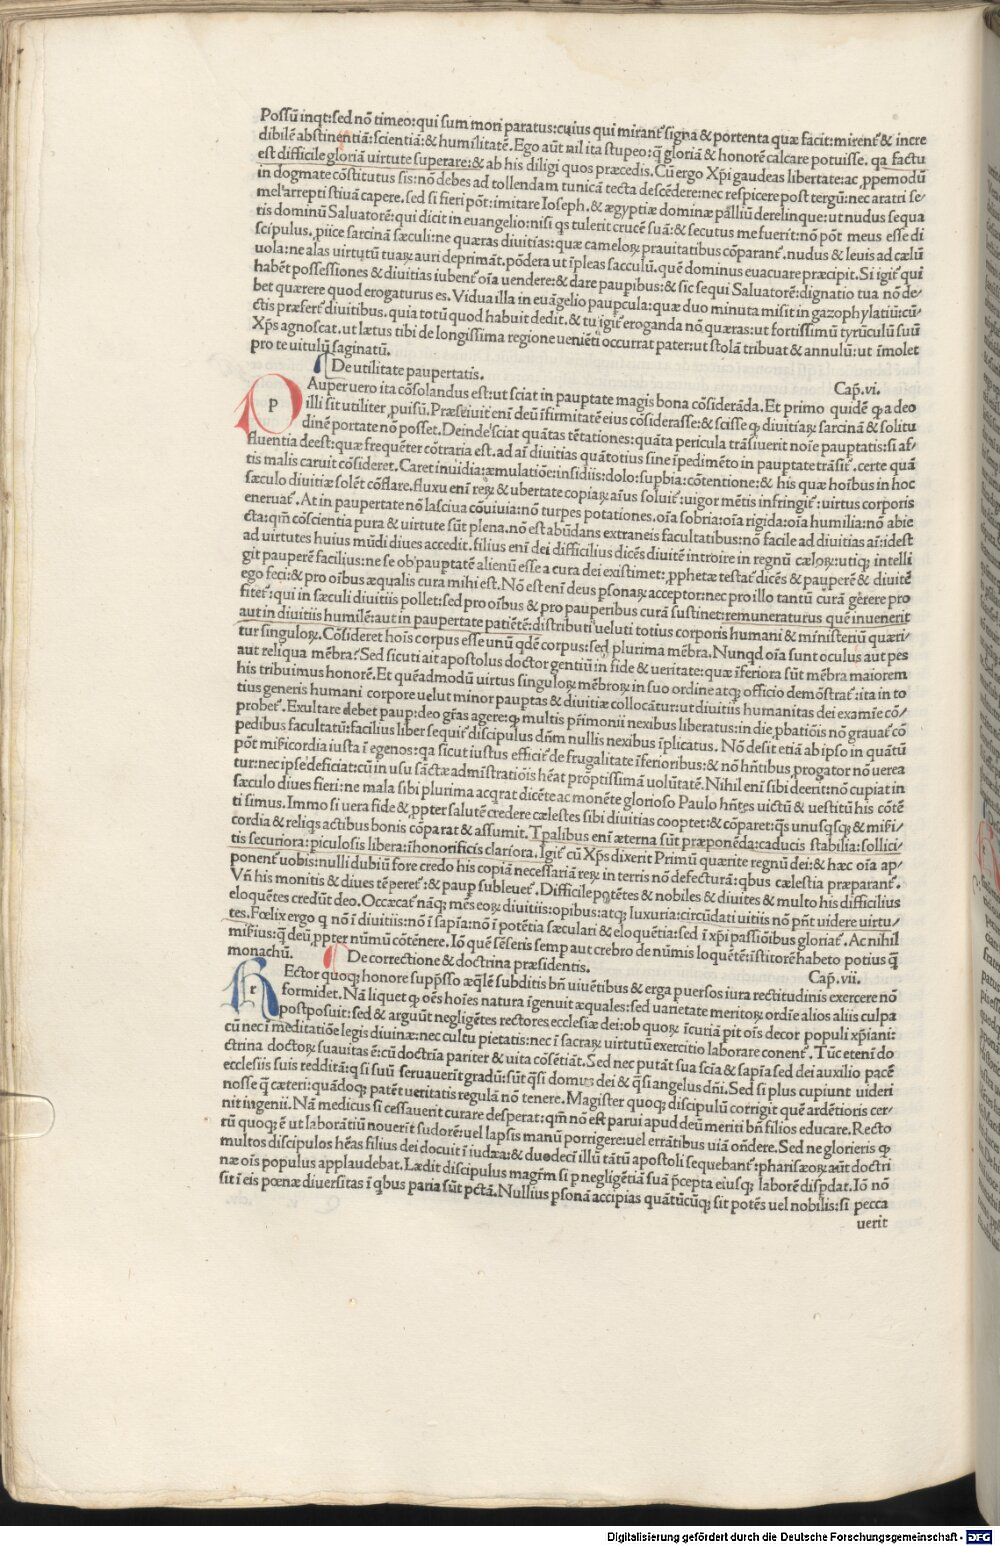 Possū inqt:sed nō timeo:qui sum mori paratus:cuius qui mirant᷑ signa & portenta quæ facit:mirent᷑ & incre
dibilē abstinentiā:scientiā:& humilitatē. Ego aūt nil ita stupeo:q̄ gloriā & honorē calcare potuisse. qa factu
est difficile gloriā uirtute superare:& ab his diligi quos præcedis. Cū ergo Xp̄i gaudeas libertate:ac ꝓpemodū
in dogmate cōstitutus sis:nō debes ad tollendam tunicā tecta descēdere:nec respicere post tergū:nec aratri se/
mel arrepti stiuā capere. sed si fieri pōt:imitare Ioseph. & ægyptiæ dominæ pālliū derelinque:ut nudus sequa
ris dominū Saluatorē:qui dicit in euangelio:nisi qs tulerit crucē suā:& secutus me fuerit:nō pōt meus esse di
scipulus. ꝓiice sarcinā sæculi:ne quæras diuitias:quæ cameloꝝ prauitatibus cōparant᷑. nudus & leuis ad cælū
uola:ne alas uirtutū tuaꝝ auri deprimāt. pōdera ut īpleas sacculū. quē dominus euacuare præcipit. Si igit᷑ qui
habēt possessiones & diuitias iubent᷑ oīa uendere:& dare paupibus:& sic sequi Saluatorē:dignatio tua nō de/
bet quærere quod erogaturus es. Vidua illa in euāgelio paupcula:quæ duo minuta misit in gazophylatiū:cū/
ctis præfert᷑ diuitibus. quia totū quod habuit dedit. & tu igit᷑ eroganda nō quæras:ut fortissimū tyrūculū suū
Xp̄s agnoscat. ut lætus tibi de longissima regione uenīeti occurrat pater:ut stolā tribuat & annulū:ut īmolet
pro te uitulū saginatū.
De utilitate paupertatis. Cap̄.vi.
P Auper uero ita cōsolandus est:ut sciat in pauptate magis bona cōsiderāda. Et primo quidē ꝙ a deo
illi sit utiliter ꝓuisū. Præsciuit enī deū īfirmitatē eius cōsiderasse:& scisse ꝙ diuitiaꝝ sarcinā & solitu
dinē portate nō posset. Deinde sciat quātas tētationes:quāta pericula trāsiuerit noīe pauptatis:si af/
fluentia deest:quæ frequēter cōtraria est. ad aī diuitias quātotius sine īpedimēto in pauptate trāsit᷑. certe quā
tis malis caruit cōsideret. Caret inuidia:æmulatiōe:insidiis:dolo:supbia:cōtentione:& his quæ hoībus in hoc
sæculo diuitiæ solēt cōflare. fluxu enī reꝝ & ubertate copiaꝝ aīus soluit᷑:uigor mētis infringit᷑:uirtus corporis
eneruat᷑. At in paupertate nō lasciua cōuiuia:nō turpes potationes. oīa sobria:oīa rigida:oīa humilia:nō abie
cta:qm̄ cōscientia pura & uirtute sūt plena. nō est abūdans extraneis facultatibus:nō facile ad diuitias aī:idest
ad uirtutes huius mūdi diues accedit. filius enī dei difficilius dicēs diuitē introire in regnū cæloꝝ:utiqꝫ intelli
git pauperē facilius:ne se ob pauptatē alienū esse a cura dei existimet:ꝓphetæ testat᷑ dicēs & pauperē & diuitē
ego feci:& pro oībus æqualis cura mihi est. Nō est enī deus psonaꝝ acceptor:nec pro illo tantū curā gerere pro
fitet᷑:qui in sæculi diuitiis pollet:sed pro oībus & pro pauperibus curā sustinet:remuneraturus quē inuenerit
aut in diuitiis humilē:aut in paupertate patiētē:distributi ueluti totius corporis humani & ministeriū quæri/
tur singuloꝝ. Cōsideret hoīs corpus esse unū qdē corpus:sed plurima mēbra. Nunqd oīa sunt oculus aut pes
aut reliqua mēbra? Sed sicuti ait apostolus doctor gentiū in fide & ueritate:quæ īferiora sūt mēbra maiorem
his tribuimus honorē. Et quēadmodū uirtus singuloꝝ mēbroꝝ in suo ordine atqꝫ officio demōstrat᷑:ita in to
tius generis humani corpore uelut minor pauptas & diuitiæ collocātur:ut diuitiis humanitas dei examīe cō/
probet᷑. Exultare debet paup:deo gr̄as agere:ꝙ multis pr̄imonii nexibus liberatus:in die ꝓbatiōis nō grauat᷑ cō
pedibus facultatū:facilius liber sequit᷑ discipulus dn̄m nullis nexibus īplicatus. Nō desit etiā ab ipso in quātū
pōt misericordia iusta ī egenos:qa sicut iustus efficit᷑ de frugalitate īferioribus:& nō hn̄tibus ꝓrogator nō uerea
tur:nec ipse deficiat:cū in usu sāctæ admīstratiōis hēat prōptissimā uolūtatē. Nihil enī sibi deerit:nō cupiat in
sæculo diues fieri:ne mala sibi plurima acqrat dicēte ac monēte glorioso Paulo hn̄tes uictū & uestitū his cōtē
ti simus. Immo si uera fide & ꝓpter salutē credere cælestes sibi diuitias cooptet:& cōparet:qs unusqsqꝫ & misri/
cordia & reliqs actibus bonis cōparat & assumit. Tpalibus enī æterna sūt præponēda:caducis stabilia:sollici/
tis securiora:piculosis libera:īhonorificis clariora. Igit᷑ cū Xp̄s dixerit Primū quærite regnū dei:& hæc oīa ap/
ponent᷑ uobis:nulli dubiū fore credo his copiā necessariā reꝝ in terris nō defecturā:qbus cælestia præparant᷑.
Vn̄ his monitis & diues tēperet᷑:& paup subleuet᷑. Difficile potētes & nobiles & diuites & multo his difficilius
eloquētes credūt deo. Occæcat᷑ nāqꝫ mēs eoꝝ diuitiis:opibus:atqꝫ luxuria:circūdati uitiis nō pn̄t uidere uirtu/
tes. Fœlix ergo q nō ī diuitiis:nō ī sapīa:nō ī potētia sæculari & eloquētia:sed ī xp̄i passiōibus gloriat᷑. Ac nihil
misrius:q̄ deū ꝓpter nūmū cōtēnere. Iō quē sēseris semp aut crebro de nūmis loquētē:īstitorē habeto potius q̄
monachū.
De correctione & doctrina præsidentis. Cap̄.vii.
R Ector quoqꝫ honore supp̄sso æq̄lē subditis bn̄ uiuētibus & erga puersos iura rectitudinis exercere nō
formidet. Nā liquet ꝙ oēs hoīes natura īgenuit æquales:sed uarietate meritoꝝ ordīe alios aliis culpa
postposuit:sed & arguūt negligētes rectores ecclesiæ dei:ob quoꝝ īcuriā pit oīs decor populi xp̄iani:
cū nec ī meditatiōe legis diuinæ:nec cultu pietatis:nec ī sacraꝝ uirtutū exercitio laborare conent᷑. Tūc etenī do
ctrina doctoꝝ suauitas ē:cū doctrīa pariter & uita cōsētiāt. Sed nec putāt sua scīa & sapīa sed dei auxilio pacē
ecclesiis suis redditā:q si suū seruauerit gradū:sūt q̄si domus dei & q̄si angelus dn̄i. Sed si plus cupiunt uideri
nosse q̄ cæteri:quādoqꝫ patēt ueritatis regulā nō tenere. Magister quoqꝫ discipulū corrigit quē ardētioris cer/
nit ingenii. Nā medicus si cessauerit curare desperat:qm̄ nō est parui apud deū meriti bn̄ filios educare. Recto
rū quoqꝫ ē ut laborātiū nouerit sudorē:uel lapsis manū porrigere:uel errātibus uiā on̄dere. Sed ne glorieris ꝙ
multos discipulos hēas filius dei docuit ī iudæa:& duodeci illū tātū apostoli sequebant᷑:pharisæoꝝ aūt doctri
næ oīs populus applaudebat. Lædit discipulus magr̄m si p negligētiā suā p̄cepta eiusqꝫ laborē disp̄dat. Iō nō
sit ī eis pœnæ diuersitas ī qbus paria sūt pctā. Nullius psonā accipias quātūcūqꝫ sit potēs uel nobilis:si pecca
uerit
Digitalisierung gefördert durch die Deutsche Forschungsgemeinschaft - DFG